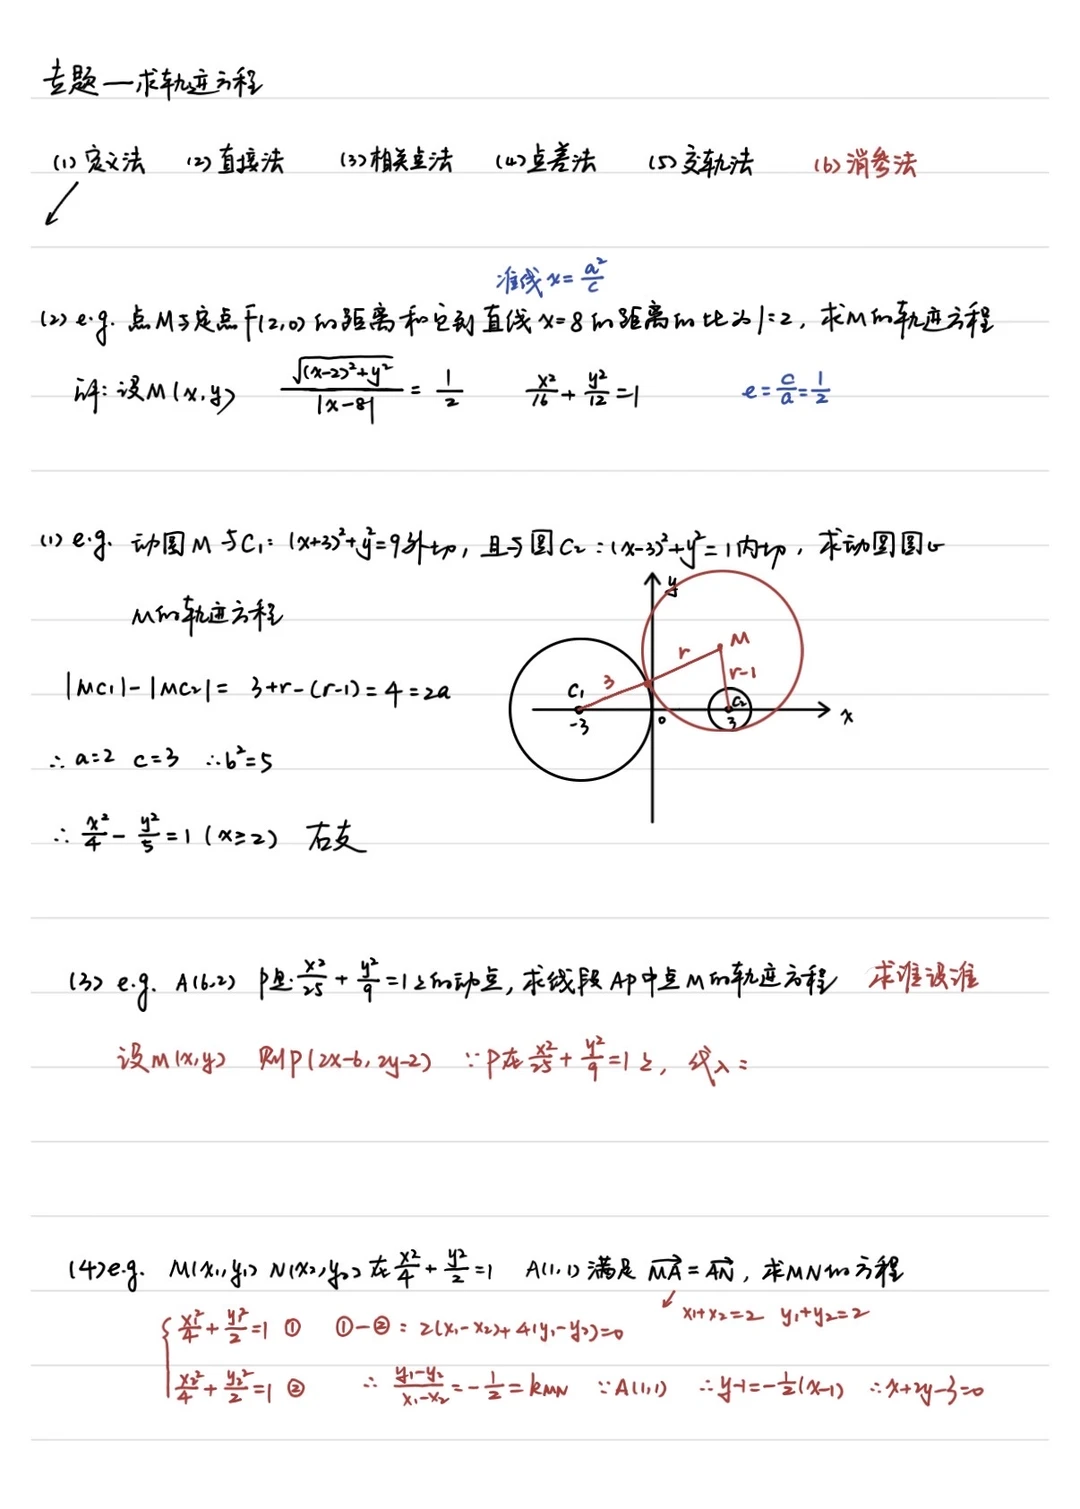 专题一求轨迹方程
(1) 定义法 (2) 直接法 (3) 相关点法 (4) 点差法 (5) 交轨法 (6) 消参法
准线 x = a²/c
(2) e.g. 点M与定点F(2,0)的距离和它到直线x=8的距离的比为1:2, 求M的轨迹方程
解: 设M(x,y) √((x-2)²+y²)/|x-8| = 1/2 x²/16 + y²/12 = 1 e = c/a = 1/2
(1) e.g. 动圆M与C₁: (x+3)²+y²=9外切, 且与圆C₂: (x-3)²+y²=1内切, 求动圆圆心
M的轨迹方程
y
M
r
|MC₁|-|MC₂| = 3+r-(r-1) = 4 = 2a
3
r-1
C₁
C₂
-3
0
3
x
∴ a=2 c=3 ∴ b²=5
∴ x²/4 - y²/5 = 1 (x≥2) 右支
(3) e.g. A(6,2) P是 x²/25 + y²/9 = 1上的动点, 求线段AP中点M的轨迹方程 求谁设谁
设M(x,y) 则P(2x-6, 2y-2) ∵ P在 x²/25 + y²/9 = 1上, 代入:
(4) e.g. M(x₁,y₁) N(x₂,y₂)在 x²/4 + y²/2 = 1 A(1,1)满足 MA→ = AN→, 求MN的方程
x₁+x₂=2 y₁+y₂=2
{ x₁²/4 + y₁²/2 = 1 ① ①-②: 2(x₁-x₂)+4(y₁-y₂)=0
x₂²/4 + y₂²/2 = 1 ② ∴ (y₁-y₂)/(x₁-x₂) = -1/2 = kMN ∵ A(1,1) ∴ y-1=-1/2(x-1) ∴ x+2y-3=0